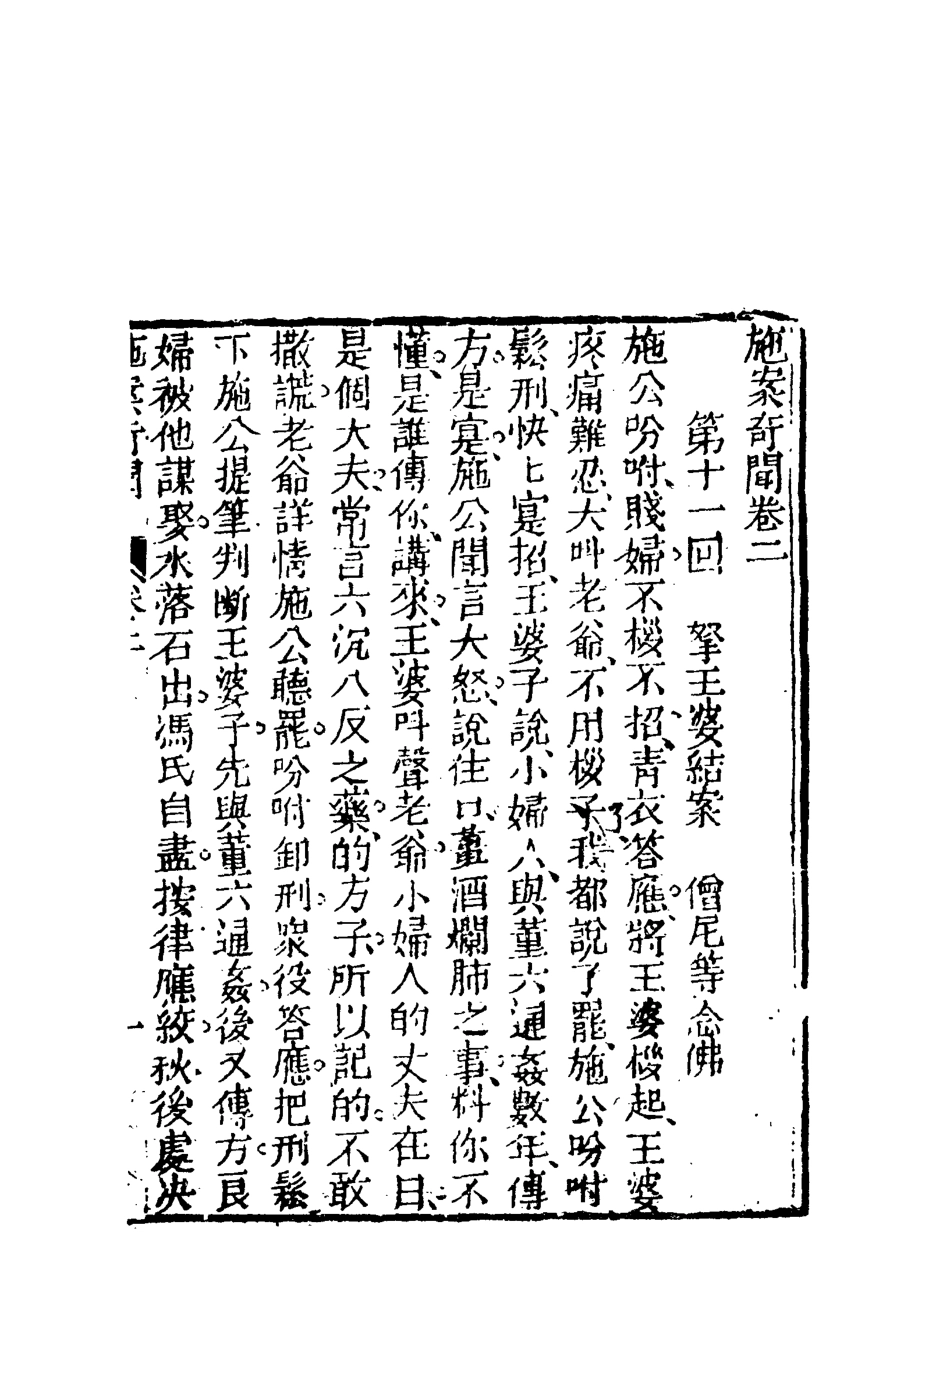 施案奇聞卷二
第十一回　拏王婆結案　僧尼等念佛
施公吩咐、賤婦不桚不招、青衣答應。將王婆桚起、王婆
疼痛難忍、大叫老爺、不用桚子了、我都說了罷、施公吩咐
鬆刑、快七寔招、王婆子說、小婦人、與董六通姦數年、傳
方是寔、施公聞言大怒、說住口、董酒爛肺之事、料你不
懂、是誰傳你、講來、王婆叫聲老爺、小婦人的丈夫在日、
是個大夫、常言六沉八反之藥、的方子、所以記的、不敢
撒謊。老爺詳情施公聽罷。吩咐卸刑。衆役答應。把刑鬆
下施公提筆判斷王婆子。先與董六通姦。後又傳方。良
婦被他謀娶。水落石出。馮氏自盡。按律應絞。秋後處決
施案奇聞　卷二　一